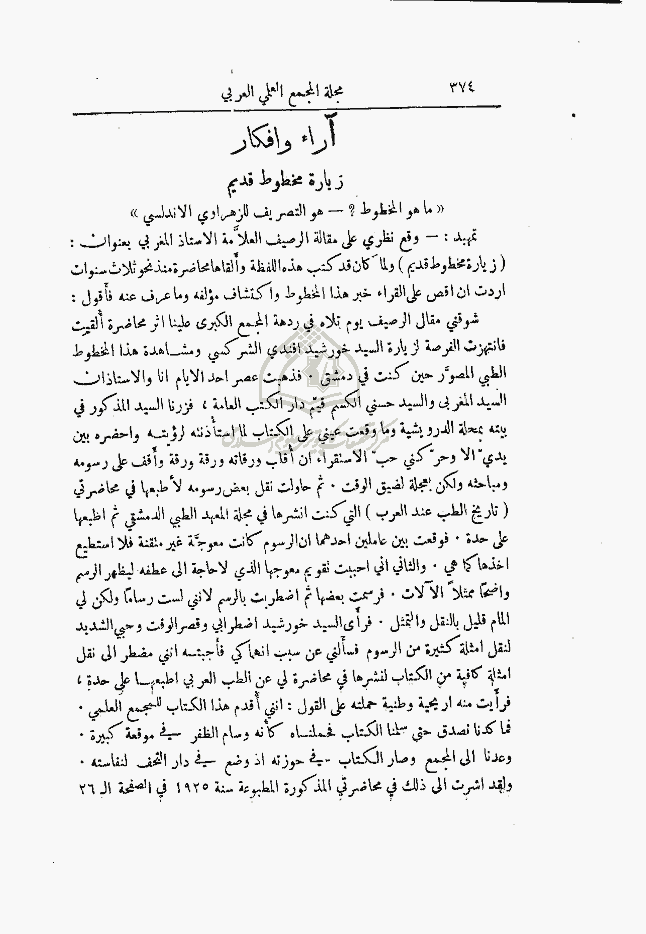 ٣٧٤ مجلة المجمع العلمي العربي
آراء وافكار
زيارة مخطوط قديم
« ما هو المخطوط ? — هو التصريف للزهراوي الاندلسي »
تمهيد : — وقع نظري على مقالة الرصيف العلاَّمة الاستاذ المغربي بعنوان :
( زيارة مخطوط قديم ) ولما كان قد كتب هذه اللفظة وألقاها محاضرة منذ نحو ثلاث سنوات
اردت ان اقص على القراء خبر هذا المخطوط واكتشاف مؤلفه وما عرف عنه فأقول :
شوقني مقال الرصيف يوم تلاه في ردهة المجمع الكبرى علينا اثر محاضرة ألقيت
فانتهزت الفرصة لزيارة السيد خورشيد افندي الشركسي ومشاهدة هذا المخطوط
الطبي المصوَّر حين كنت في دمشق . فذهبت عصر احد الايام انا والاستاذان
السيد المغربي والسيد حسني الكسم قيّم دار الكتب العامة ، فزرنا السيد المذكور في
بيته بمحلة الدرويشية وما وقعت عيني على الكتاب لما استأذنته لرؤيته واحضره بين
يديّ الا وحرّكني حبّ الاستقراء ان أقلب ورقاته ورقة ورقة وأقف على رسومه
ومباحثه ولكن بعجلة لضيق الوقت . ثم حاولت نقل بعض رسومه لأطبعها في محاضرتي
( تاريخ الطب عند العرب ) التي كنت انشرها في مجلة المعهد الطبي الدمشقي ثم اطبعها
على حدة . فوقعت بين عاملين احدهما ان الرسوم كانت معوجَّة غير متقنة فلا استطيع
اخذها كما هي . والثاني اني احببت تقويم معوجها الذي لا حاجة الى عطفه ليظهر الرسم
واضحًا ممثلاً الآلات . فرسمت بعضها ثم اضطربات بالرسم لانني لست رسامًا ولكن لي
المام قليل بالنقل والتمثل . فرأى السيد خورشيد اضطرابي وقصر الوقت وحبي الشديد
لنقل امثلة كثيرة من الرسوم فسألني عن سبب انهماكي فأجبته انني مضطر الى نقل
امثلة كافية من الكتاب لنشرها في محاضرة لي عن الطب العربي اطبعها على حدة ،
فرأيت منه اريحية وطنية حملته على القول : انني أقدم هذا الكتاب للمجمع العلمي .
فما كدنا نصدق حتى سلمنا الكتاب فحملناه كأنه وسام الظفر في موقعة كبيرة .
وعدنا الى المجمع وصار الكتاب في حوزته اذ وضع في دار التحف لنفاسته .
ولقد اشرت الى ذلك في محاضرتي المذكورة المطبوعة سنة ١٩٢٥ في الصفحة الـ ٢٦